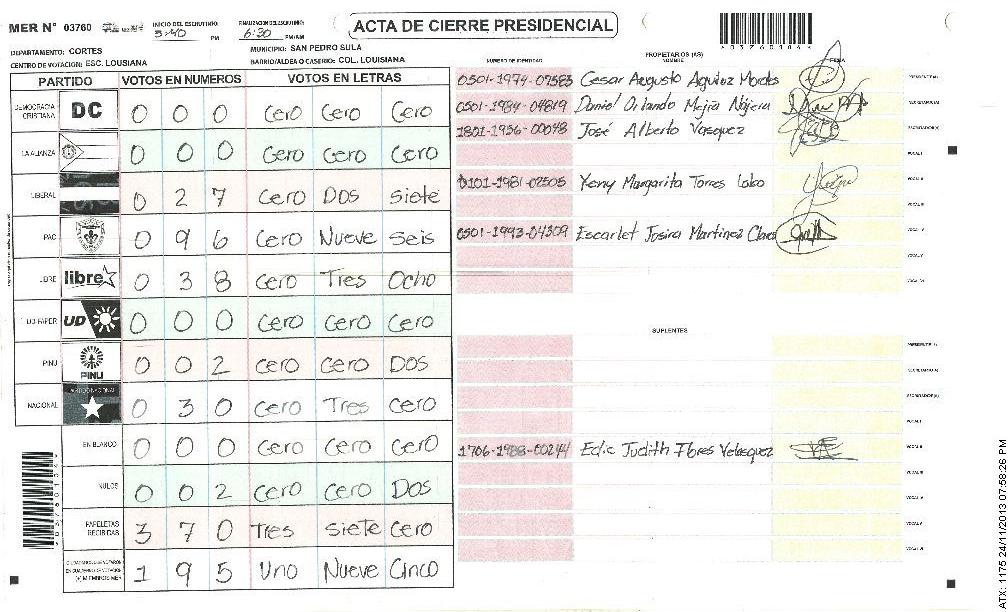 MER N° 03760
INICIO DEL ESCRUTINIO:
5:40 PM
FINALIZACION DEL ESCRUTINIO:
6:30 PM/AM
ACTA DE CIERRE PRESIDENCIAL
DEPARTAMENTO: CORTES
MUNICIPIO: SAN PEDRO SULA
CENTRO DE VOTACION: ESC. LOUSIANA
BARRIO/ALDEA O CASERIO: COL. LOUISIANA
PARTIDO VOTOS EN NUMEROS VOTOS EN LETRAS
DEMOCRACIA CRISTIANA DC 0 0 0 Cero Cero Cero
LA ALIANZA 0 0 0 Cero Cero Cero
LIBERAL 0 2 7 Cero Dos Siete
PAC 0 9 6 Cero Nueve Seis
LIBRE libre 0 3 8 Cero Tres Ocho
UD-FAPER UD 0 0 0 Cero Cero Cero
PINU PINU 0 0 2 Cero Cero Dos
NACIONAL PARTIDO NACIONAL 0 3 0 Cero Tres Cero
EN BLANCO 0 0 0 Cero Cero Cero
NULOS 0 0 2 Cero Cero Dos
PAPELETAS RECIBIDAS 3 7 0 Tres Siete Cero
1 9 5 Uno Nueve Cinco
PROPIETARIOS (AS)
NUMERO DE IDENTIDAD NOMBRE FIRMA
0501-1974-07583 Cesar Augusto Aguiluz Morales PRESIDENTE(A)
0501-1984-04819 Daniel Orlando Mejia Najera SECRETARIO(A)
1801-1956-00048 José Alberto Vasquez ESCRUTADOR(A)
VOCAL I
0101-1981-02505 Yeny Margarita Torres Lobo VOCAL II
VOCAL III
0501-1993-04309 Escarlet Josira Martinez Claros VOCAL IV
VOCAL V
VOCAL VI
SUPLENTES
PRESIDENTE(A)
SECRETARIO(A)
ESCRUTADOR(A)
VOCAL I
1706-1988-00244 Edic Judith Flores Velasquez VOCAL II
VOCAL III
VOCAL IV
VOCAL V
VOCAL VI
ATX: 1175 24/11/2013 07:58:26 PM